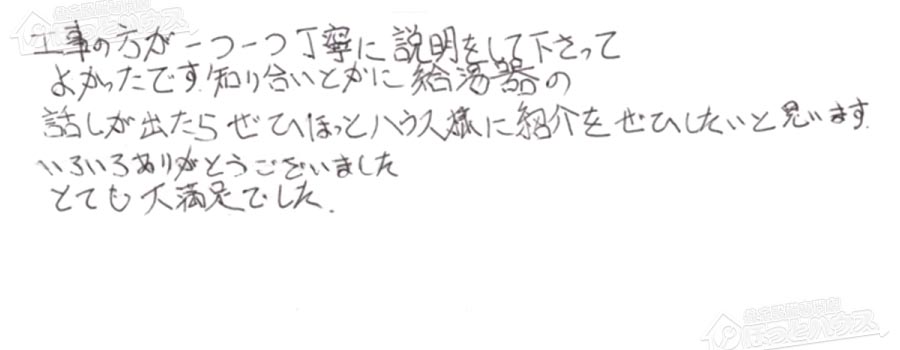 工事の方が一つ一つ丁寧に説明をして下さって
よかったです。知り合いとかに給湯器の
話しが出たらぜひほっとハウス様に紹介をぜひしたいと思います。
いろいろありがとうございました
とても大満足でした.
ほっとハウス